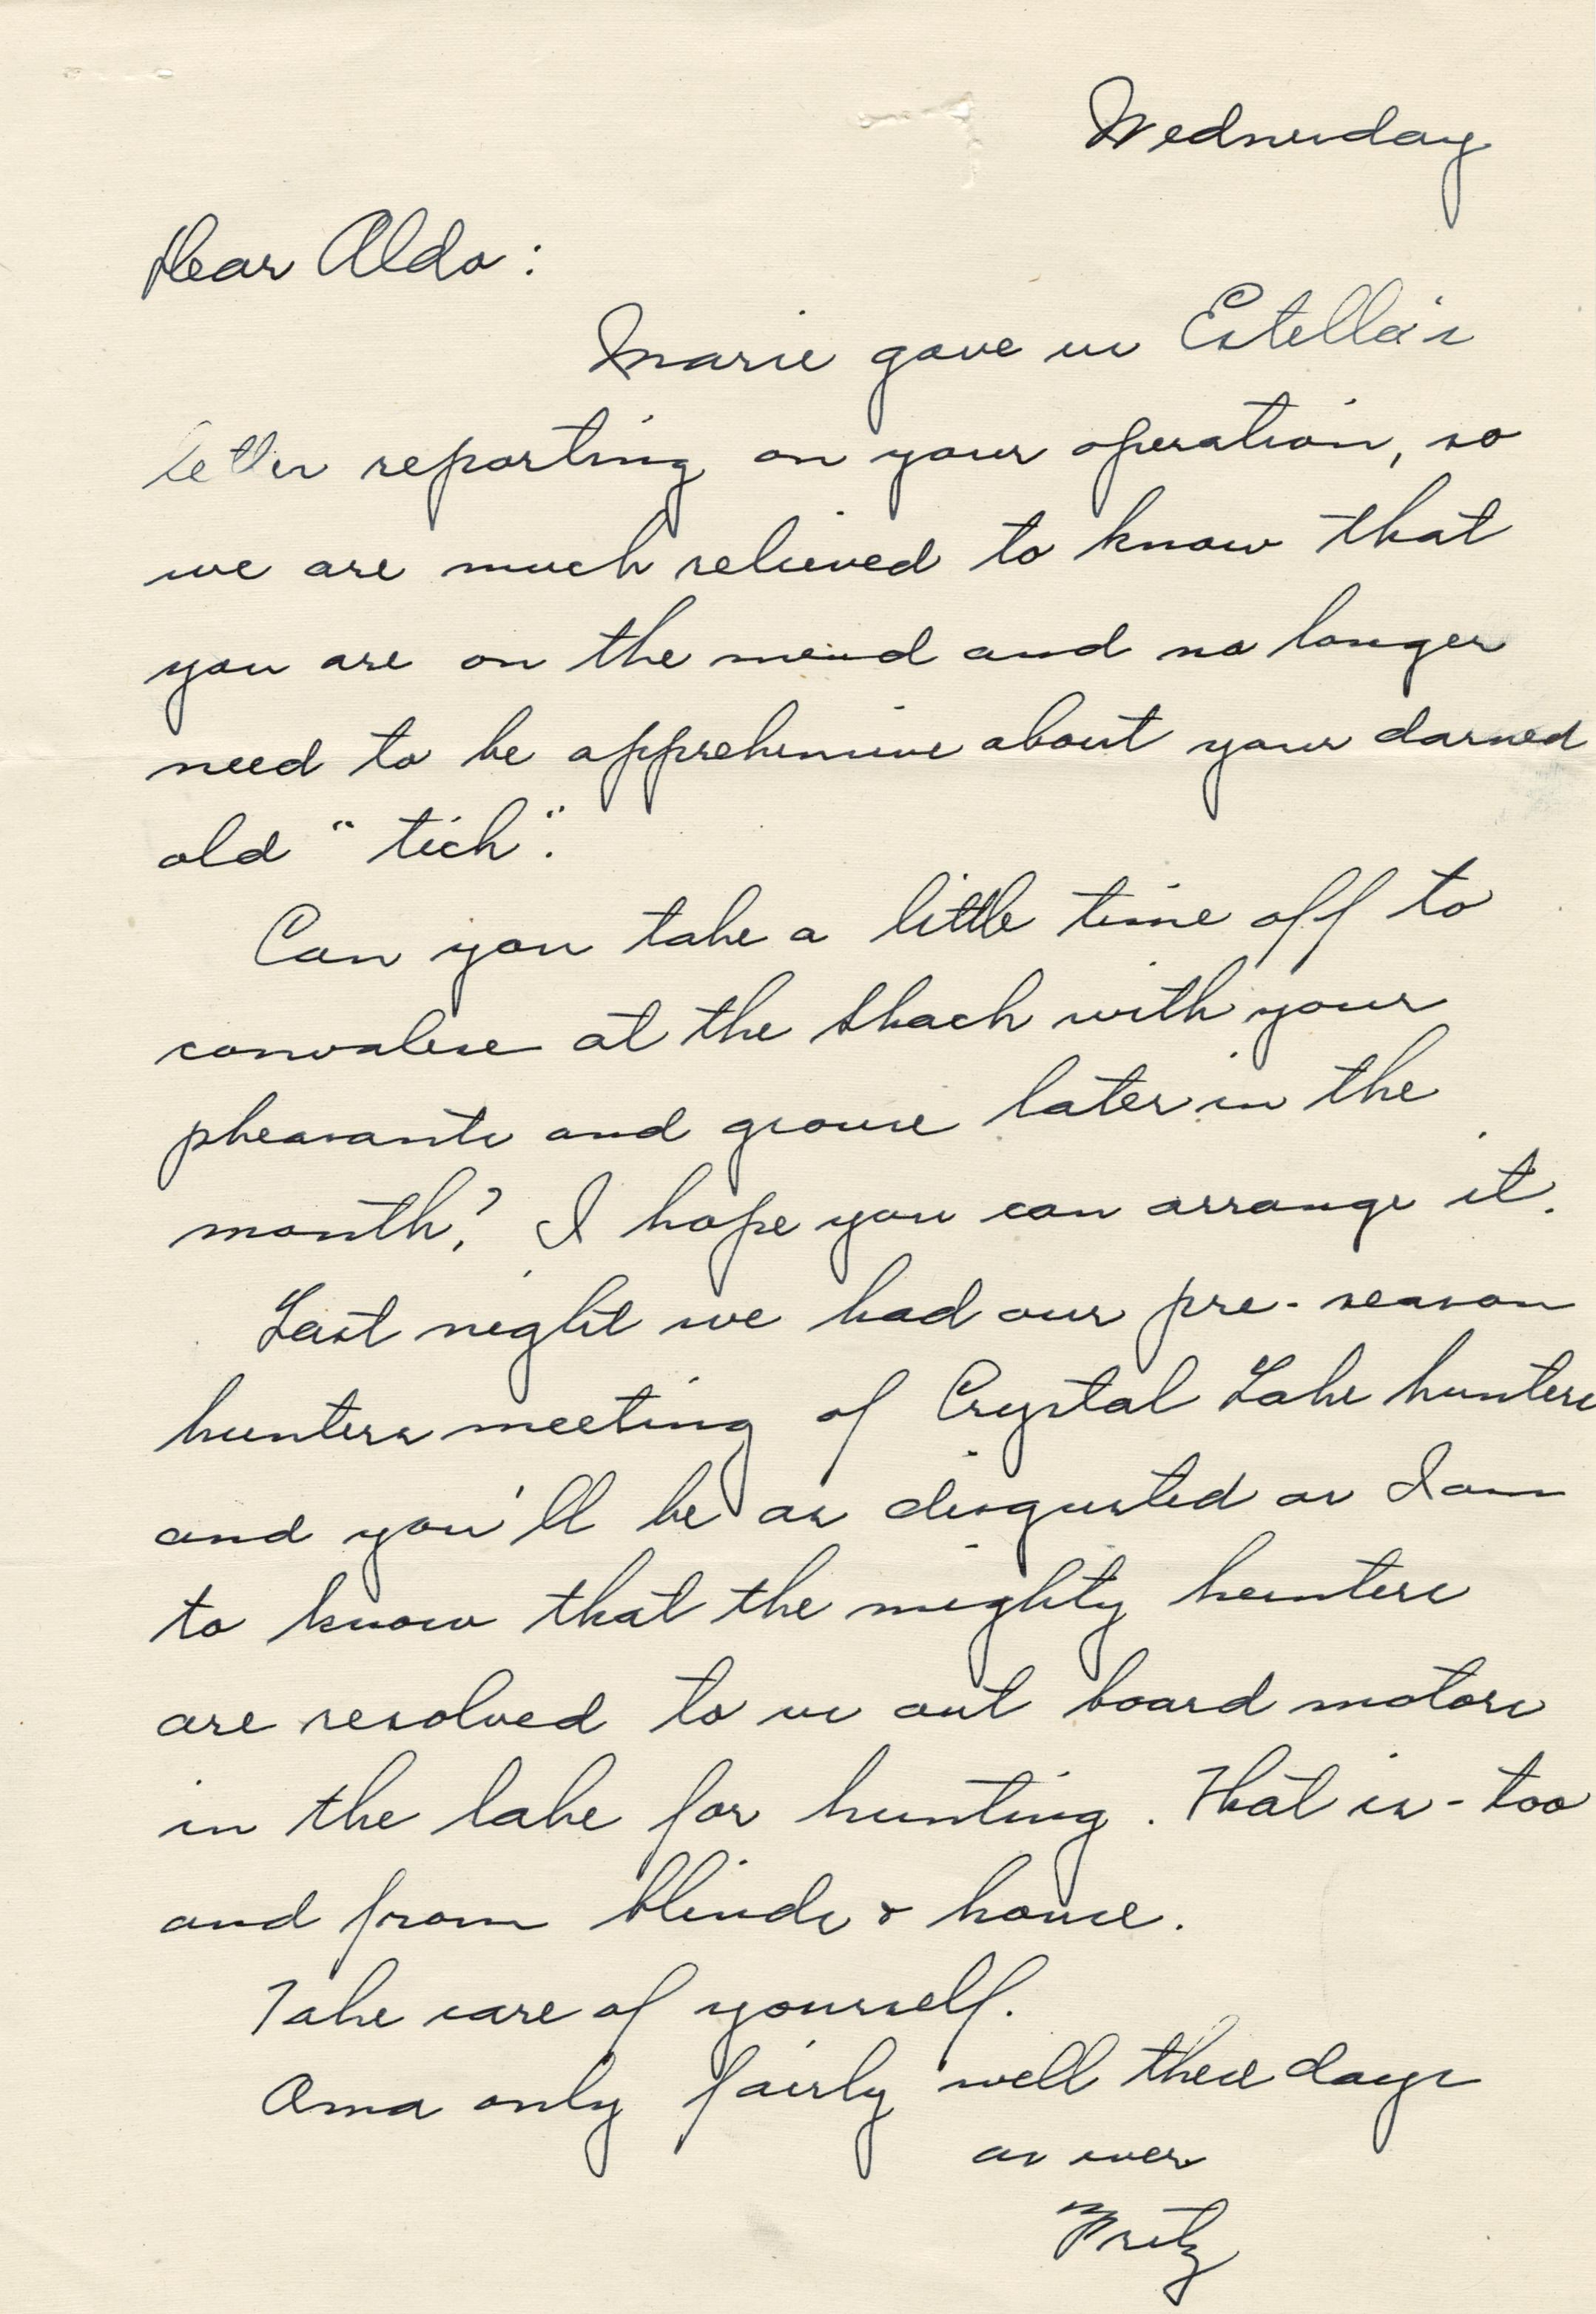 Wednesday
Dear Aldo:
Marie gave us Estella's
letter reporting on your operation, so
we are much relieved to know that
you are on the mend and no longer
need to be apprehensive about your darned
old "tich".
Can you take a little time off to
convalese at the Shack with your
pheasants and grouse later in the
month? I hope you can arrange it.
Last night we had our pre-season
hunters meeting of Crystal Lake hunters
and you'll be as disgusted as I am
to know that the mighty hunters
are resolved to us out board motors
in the lake for hunting. That is - too
and from blinds & house.
Take care of yourself.
Oma only fairly well these days
as ever
Fritz